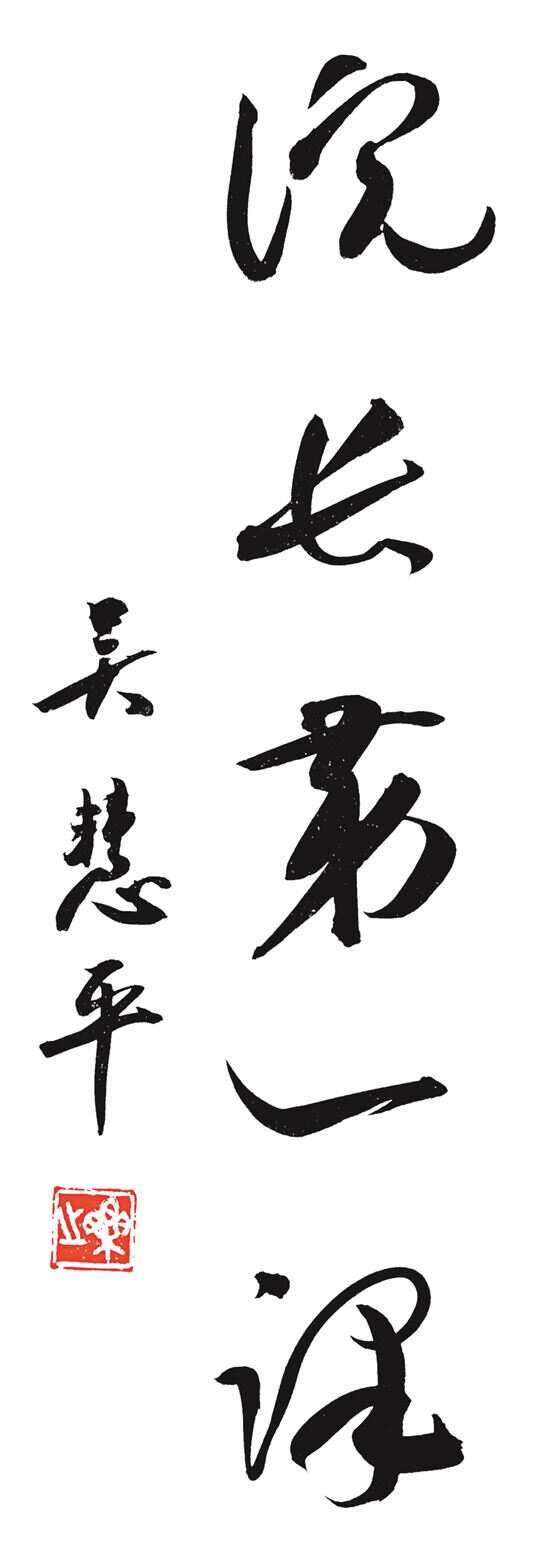 院长第一课
吴慧平